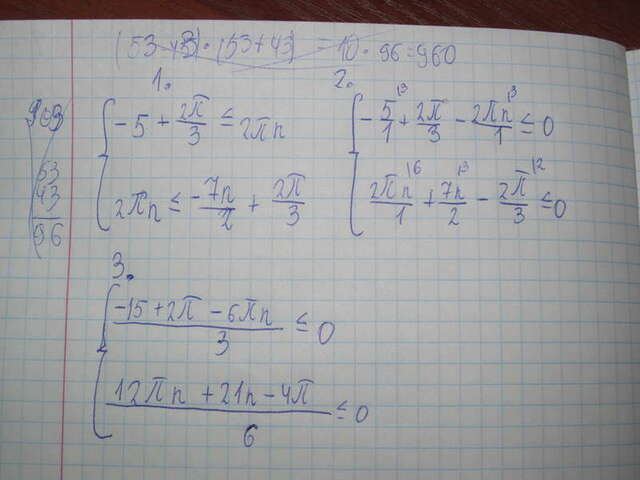 (53-43)·(53+43) = 10·96=960
1.
-5 + 2π/3 ≤ 2πn
2πn ≤ -7n/2 + 2π/3
2.
-5/1 + 2π/3 - 2πn/1 ≤ 0
2πn/1 + 7n/2 - 2π/3 ≤ 0
53
43
96
3.
(-15+2π-6πn)/3 ≤ 0
(12πn+21n-4π)/6 ≤ 0